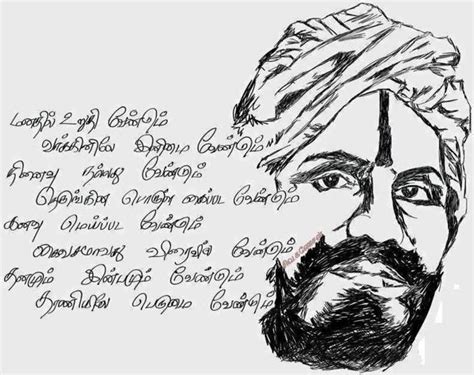 மனதில் உறுதி வேண்டும்
வாக்கினிலே இனிமை வேண்டும்
நினைவு நல்லது வேண்டும்
நெருங்கின பொருள் கைப்பட வேண்டும்
கனவு மெய்ப்பட வேண்டும்
கைவசமாவது விரைவில் வேண்டும்
தனமும் இன்பமும் வேண்டும்
தரணியிலே பெருமை வேண்டும்